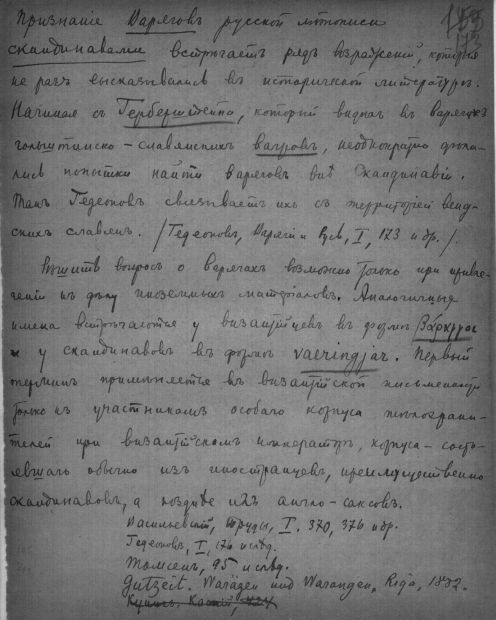 Признаніе Варяговъ русской лѣтописи
скандинавами встрѣчаетъ рядъ возраженій, которыя
не разъ высказывались въ исторической литературѣ.
Начиная съ Герберштейна, который видѣлъ въ варягахъ
гольштинско-славянскихъ вагровъ, неоднократно дѣла-
лись попытки найти варяговъ внѣ Скандинавіи.
Такъ Гедеоновъ связываетъ ихъ съ территоріей венд-
скихъ славянъ. /Гедеоновъ, Варяги и Русь, I, 173 и др./.
Рѣшить вопросъ о варягахъ возможно только при привле-
ченіи къ дѣлу иноземныхъ матеріаловъ. Аналогичныя
имена встрѣчаются у византійцевъ въ формѣ Βάραγγοι
и у скандинавовъ въ формѣ vaeringjar. Первый
терминъ примѣняется въ византійской письменности
только къ участникамъ особаго корпуса тѣлохрани-
телей при византійскомъ императорѣ, корпуса-состо-
явшаго обычно изъ иностранцевъ, преимущественно
скандинавовъ, а позднѣе изъ англо-саксовъ.
Васильевскій, Труды, I. 370, 376 и др.
Гедеоновъ, I, 176 и слѣд.
Томсенъ, 95 и слѣд.
Gutzeit. Warägen und Warangen, Riga, 1882.